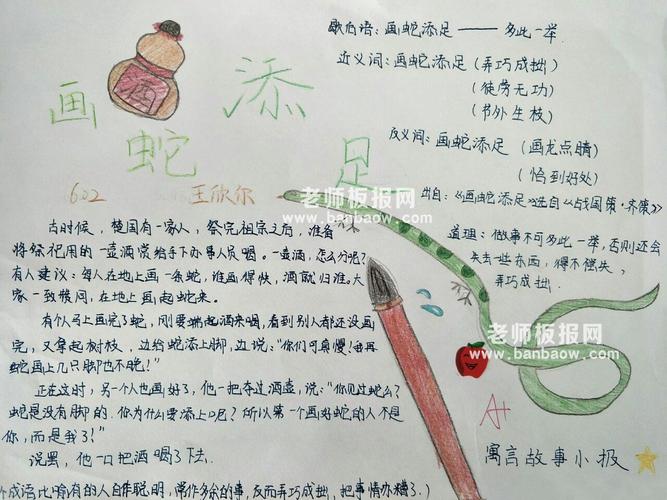 画蛇添足
602 王欣尔
歇后语：画蛇添足——多此一举
近义词：画蛇添足（弄巧成拙）
（徒劳无功）
（节外生枝）
反义词：画蛇添足（画龙点睛）
（恰到好处）
出自：《画蛇添足》选自《战国策·齐策》
道理：做事不可多此一举，否则还会
失去一些东西，得不偿失，
弄巧成拙．
酒
老师板报网
www.banbaow.com
古时候，楚国有一家人，祭完祖宗之后，准备
将祭祀用的一壶酒赏给手下办事人员喝。一壶酒，怎么分呢？
有人建议：每人在地上画一条蛇，谁画得快，酒就归谁。大
家一致赞同，在地上画起蛇来。
有个人马上画完了蛇，刚要端起酒来喝，看到别人都还没画
完，又拿起树枝，边给蛇添上脚，边说："你们可真慢！我再
蛇画上几只脚也不晚！"
正在这时，另一个人也画好了，他一把夺过酒壶，说："你见过蛇么？
蛇是没有脚的．你为什么要添上呢？所以第一个画好蛇的人不是
你，而是我了！"
说罢，他一口把酒喝了下去．
成语比喻有的人自作聪明，常作多余的事，反而弄巧成拙，把事情办糟了．）
老师板报网
www.banbaow.com
A+
寓言故事小报